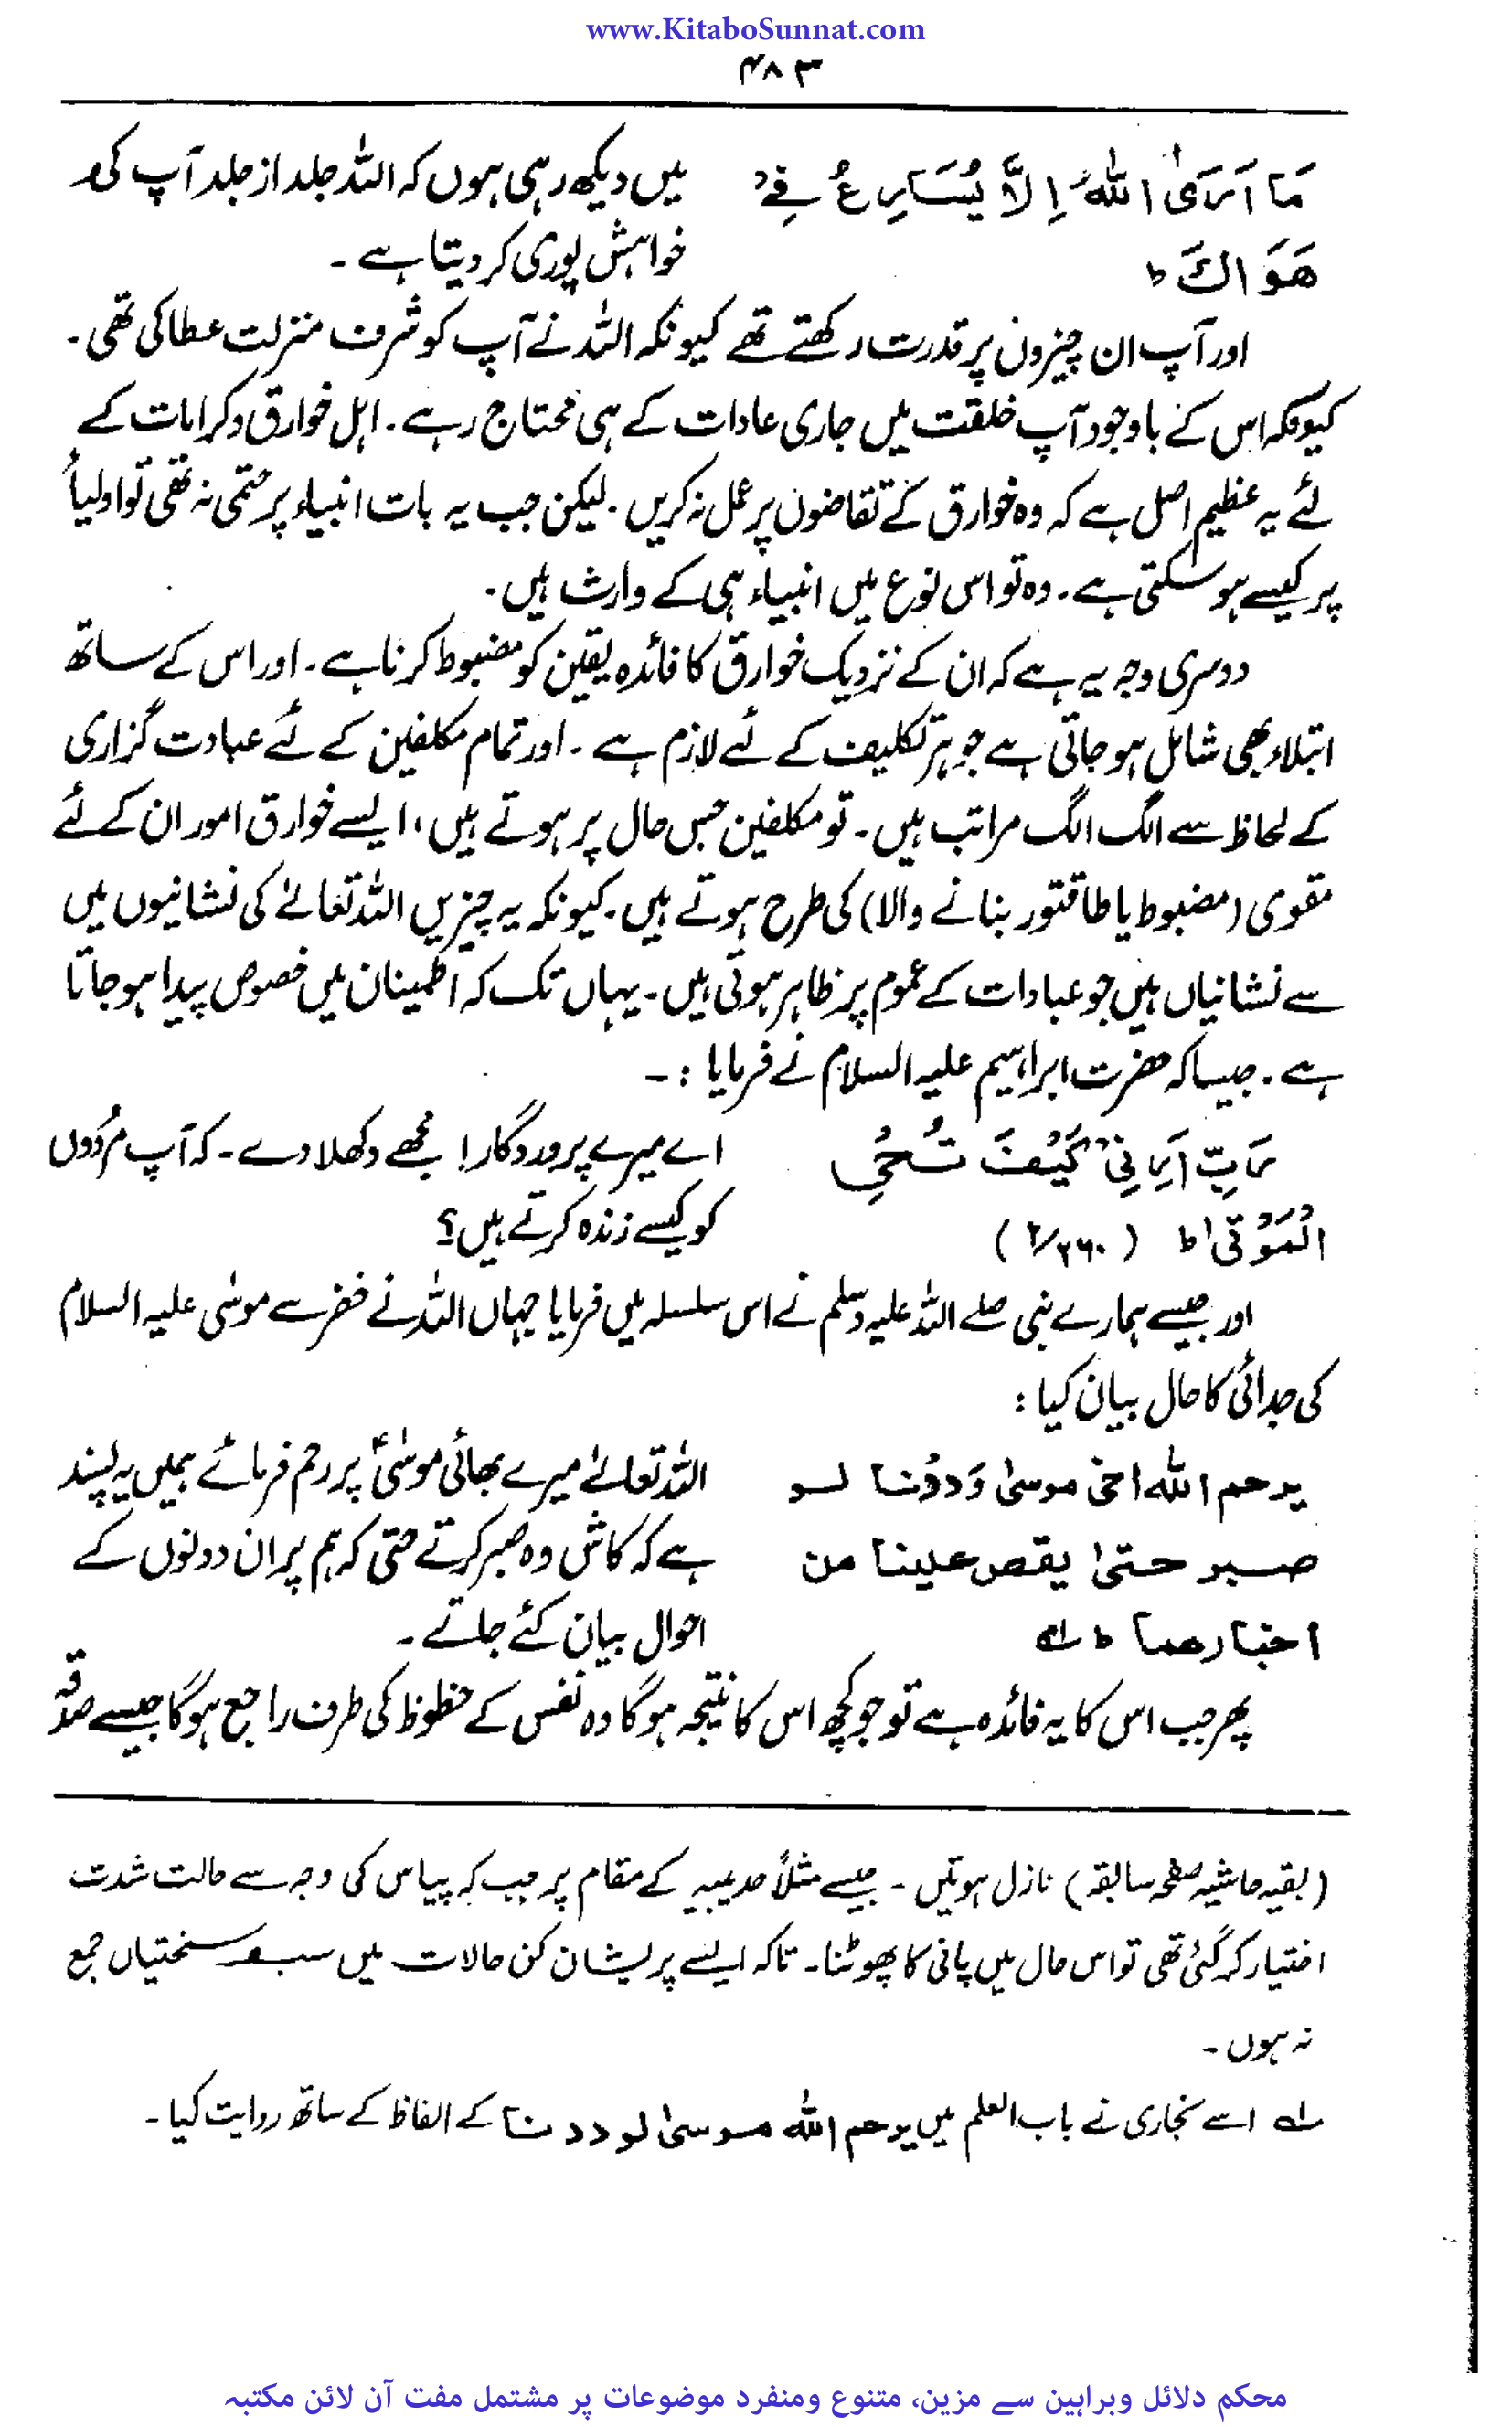 www.KitaboSunnat.com
۴۸۳
مَا اَرَى اللّٰهُ اِلَّا يُسَارِعُ فِيْ
هَوَاكَ ط
میں دیکھ رہی ہوں کہ اللہ جلد از جلد آپ کی
خواہش پوری کر دیتا ہے۔
اور آپ ان چیزوں پر قدرت رکھتے تھے کیونکہ اللہ نے آپ کو شرف منزلت عطا کی تھی۔
کیونکہ اس کے باوجود آپ خلقت میں جاری عادات کے ہی محتاج رہے۔ اہل خوارق و کرامات کے
لئے یہ عظیم اصل ہے کہ وہ خوارق کے تقاضوں پر عمل نہ کریں۔ لیکن جب یہ بات انبیاء پر حتمی نہ تھی تو اولیاء
پر کیسے ہو سکتی ہے۔ وہ تو اس نوع میں انبیاء ہی کے وارث ہیں۔
دوسری وجہ یہ ہے کہ ان کے نزدیک خوارق کا فائدہ یقین کو مضبوط کرنا ہے۔ اور اس کے ساتھ
ابتلاء بھی شامل ہو جاتی ہے جو ہر تکلیف کے لئے لازم ہے۔ اور تمام مکلفین کے لئے عبادت گزاری
کے لحاظ سے الگ الگ مراتب ہیں۔ تو مکلفین جس حال پر ہوتے ہیں، ایسے خوارق امور ان کے لئے
مقوی (مضبوط یا طاقتور بنانے والا) کی طرح ہوتے ہیں۔ کیونکہ یہ چیزیں اللہ تعالےٰ کی نشانیوں میں
سے نشانیاں ہیں جو عبادات کے عموم پر ظاہر ہوتی ہیں۔ یہاں تک کہ اطمینان میں خصوص پیدا ہو جاتا
ہے۔ جیسا کہ حضرت ابراہیم علیہ السلام نے فرمایا :۔
رَبِّ اَرِنِيْ كَيْفَ تُحْيِ
الْمَوْتٰى ط (۲/۲۶۰)
اے میرے پروردگار! مجھے دکھلا دے۔ کہ آپ مُردوں
کو کیسے زندہ کرتے ہیں؟
اور جیسے ہمارے نبی صلے اللہ علیہ وسلم نے اس سلسلہ میں فرمایا جہاں اللہ نے خضر سے موسٰی علیہ السلام
کی جدائی کا حال بیان کیا :
يرحم الله اخى موسىٰ وَددْنا لـو
صـبر حـتىٰ يقص علينا من
اخبارهما ط ؎۱
اللہ تعالےٰ میرے بھائی موسیٰؑ پر رحم فرمائے ہمیں یہ پسند
ہے کہ کاش وہ صبر کرتے حتی کہ ہم پر ان دونوں کے
احوال بیان کئے جاتے۔
پھر جب اس کا یہ فائدہ ہے تو جو کچھ اس کا نتیجہ ہوگا وہ نفس کے حظوظ کی طرف راجع ہوگا جیسے صدقہ
(بقیہ حاشیہ صفحہ سابقہ) نازل ہوتیں۔ جیسے مثلاً حدیبیہ کے مقام پر جب کہ پیاس کی وجہ سے حالت شدت
اختیار کر گئی تھی تو اس حال میں پانی کا پھوٹنا۔ تاکہ ایسے پریشان کن حالات میں سب سختیاں جمع
نہ ہوں۔
؎۱ اسے بخاری نے باب العلم میں يرحم الله مـوسىٰ لوددنا کے الفاظ کے ساتھ روایت کیا۔
محکم دلائل وبراہین سے مزین، متنوع ومنفرد موضوعات پر مشتمل مفت آن لائن مکتبہ